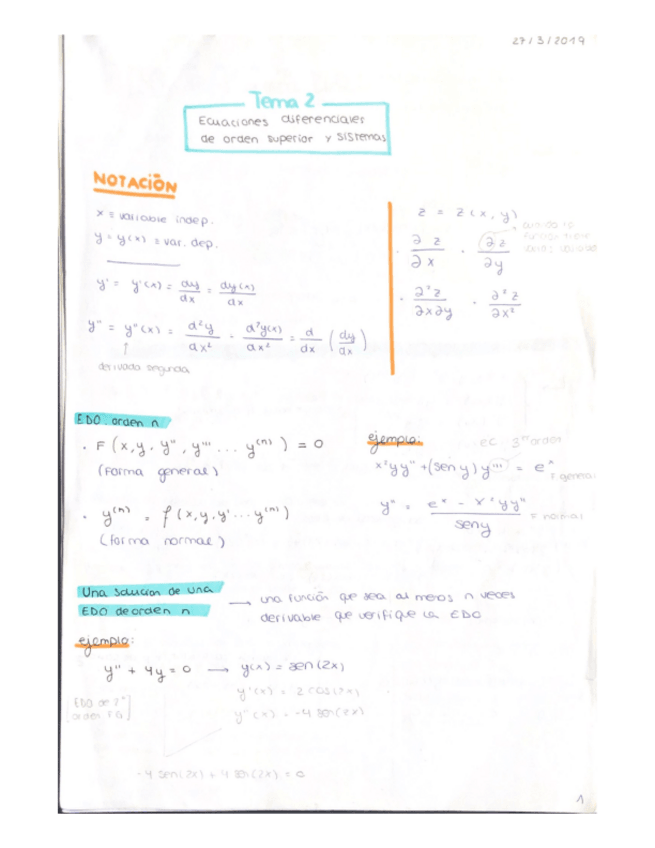 27/3/2019
Tema 2
Ecuaciones diferenciales
de orden superior y sistemas
NOTACIÓN
x ≡ variable indep.
y = y(x) ≡ var. dep.
y' = y'(x) = dy/dx = dy(x)/dx
y'' = y''(x) = d²y/dx² = d²y(x)/dx² = d/dx (dy/dx)
↑
derivada segunda
z = z(x,y)
cuando la
función tiene
· ∂z/∂x · ∂z/∂y
· ∂²z/∂x∂y · ∂²z/∂x²
EDO orden n
· F(x, y, y'', y''' ... y⁽ⁿ⁾) = 0
(forma general)
· y⁽ⁿ⁾ = f(x, y, y' ... y⁽ⁿ⁾)
(forma normal)
ejemplo:
ec 3er orden
x²yy'' + (sen y) y''' = eˣ
y'' = eˣ - x²yy'' / sen y
F normal
Una solución de una
EDO de orden n
→ una función que sea al menos n veces
derivable que verifique la EDO
ejemplo:
y'' + 4y = 0 → y(x) = sen(2x)
y'(x) = 2 cos(2x)
y''(x) = -4 sen(2x)
[EDO de 2º
orden FG]
-4 sen(2x) + 4 sen(2x) = 0
1